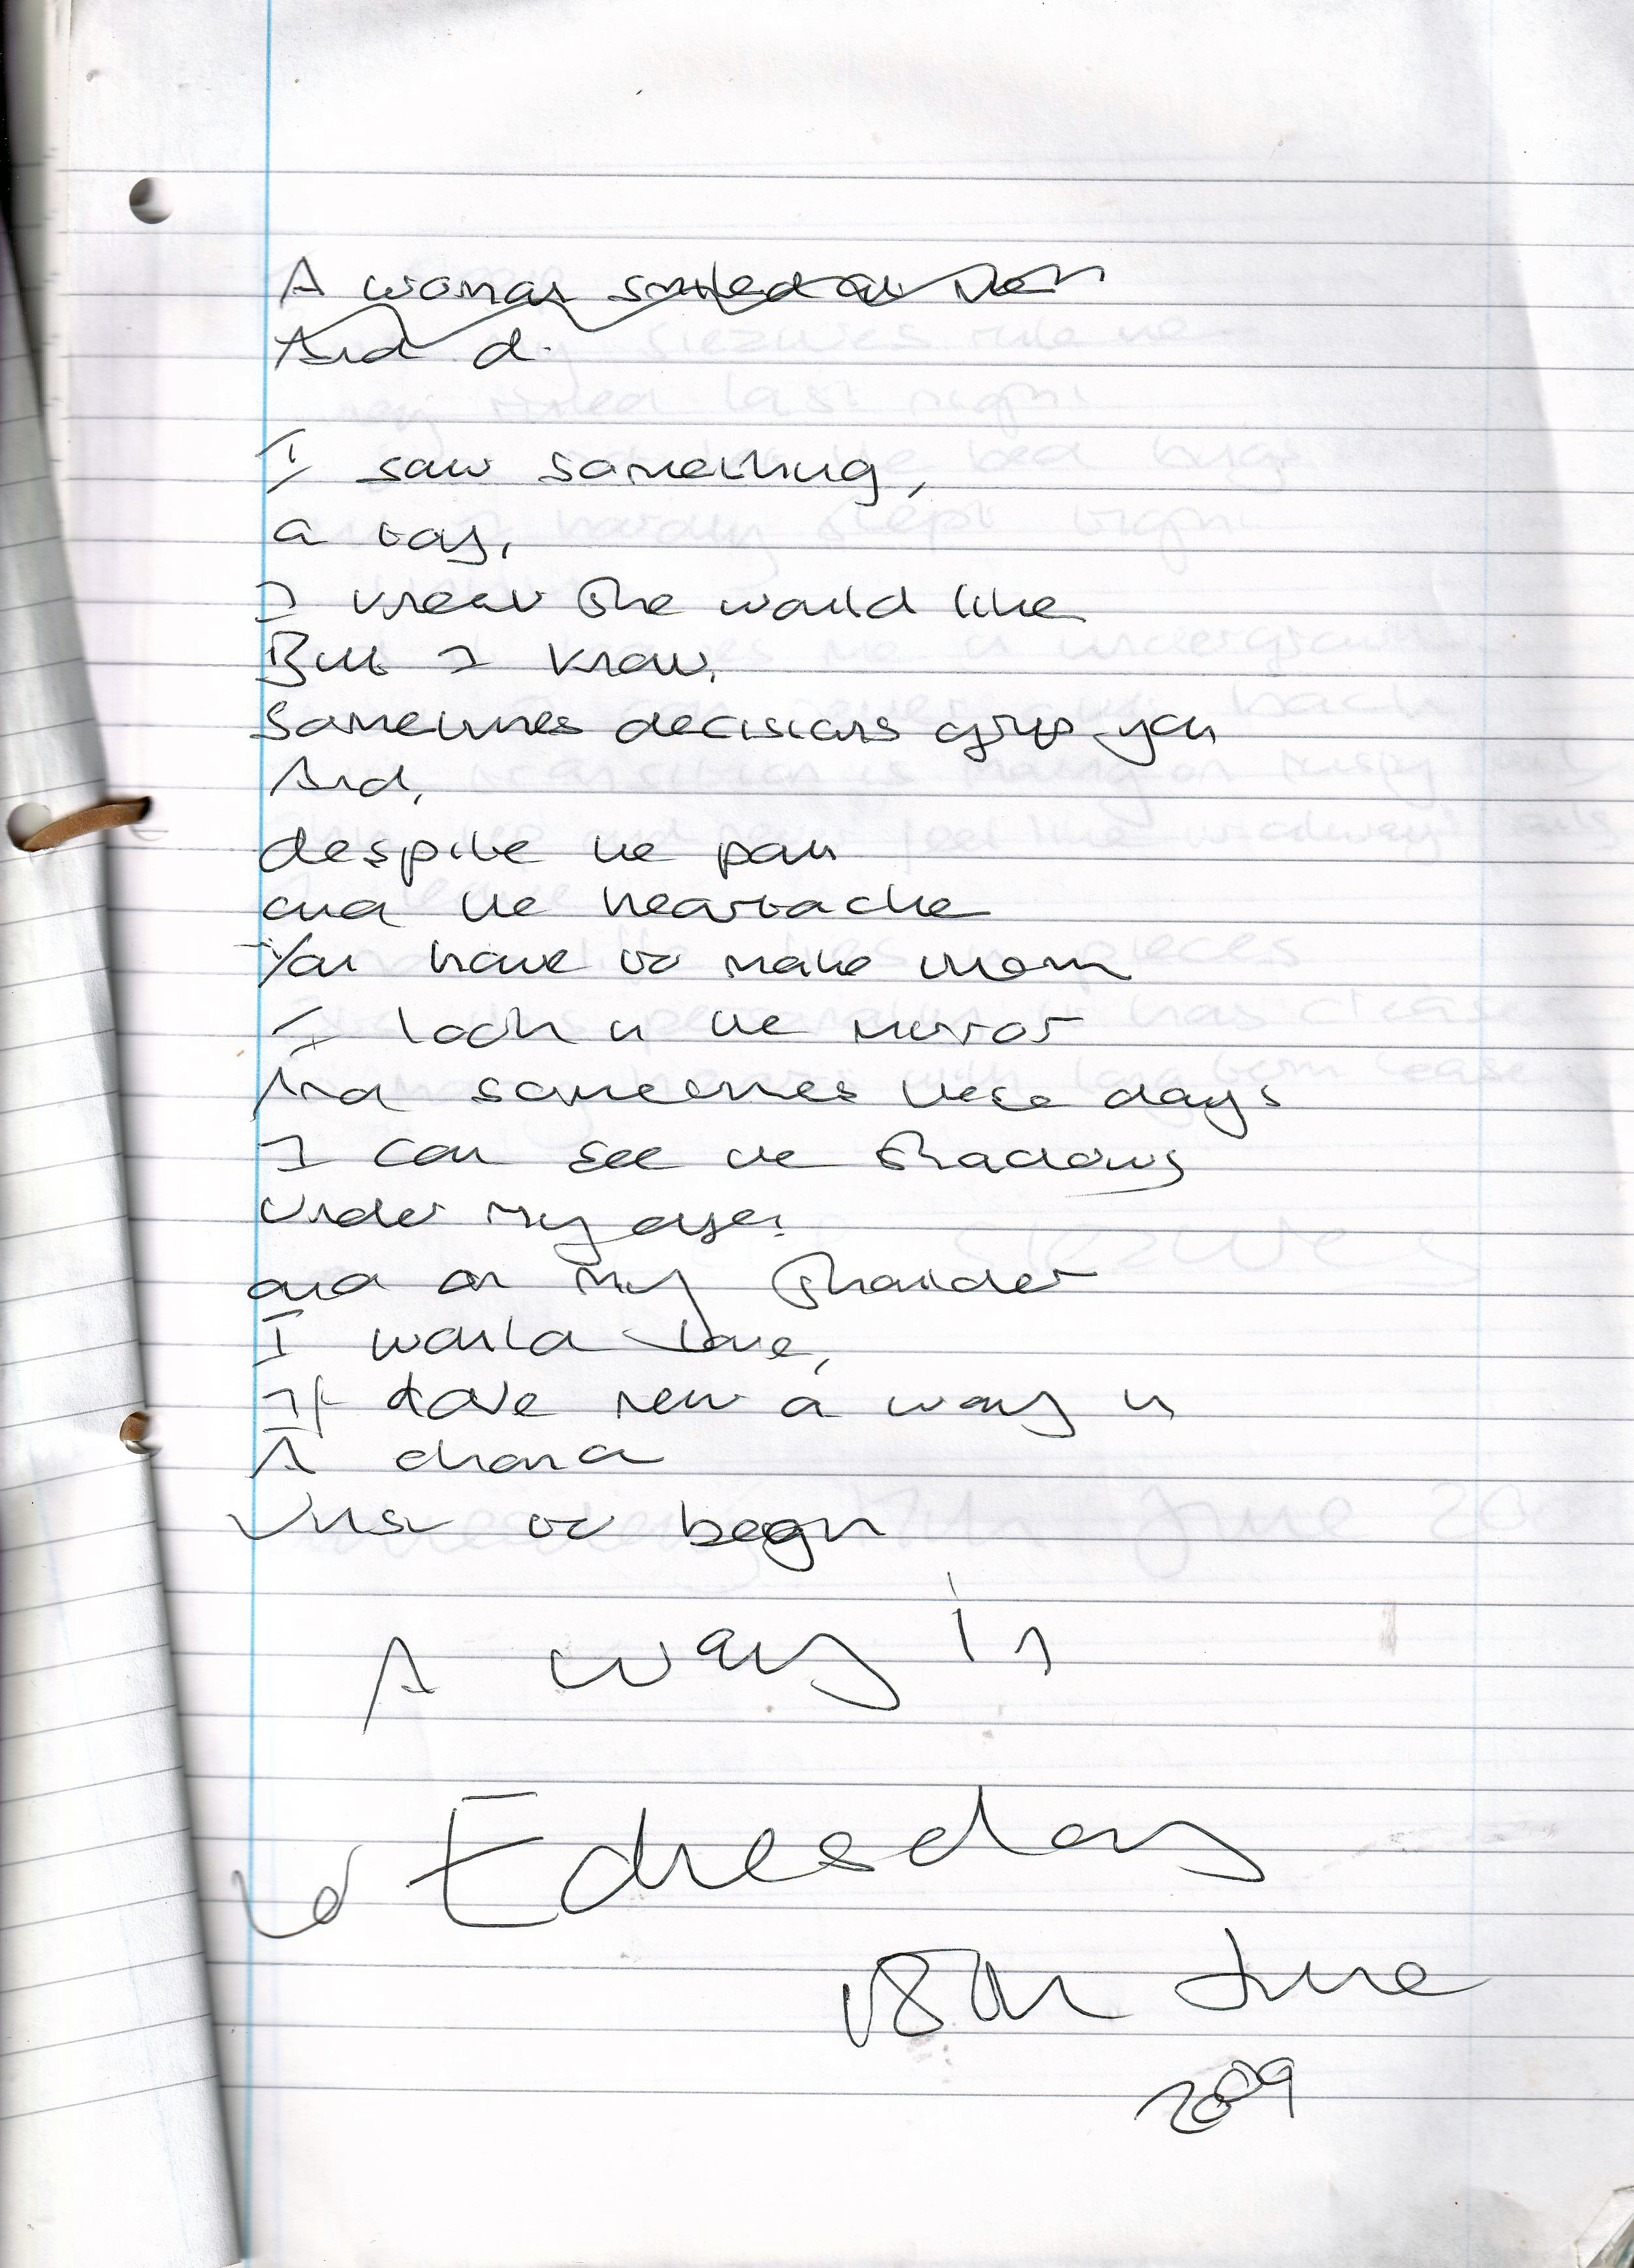 A woman smiled at her
And d
I saw something,
a toy,
I knew she would like
But I know,
Sometimes decisions grip you
And,
despite the pain
and the heartache
You have to make them
I look in the mirror
And sometimes these days
I can see the shadows
under my eyes
and on my shoulder
I would love,
If Dave new a way in
A drama
Just to begin
A way in
WEdnesday
18th June
2009